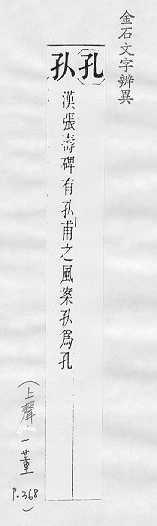 金石文字辨異
孔
漢張壽碑有甫之風案為孔
（上聲一董 P.368）